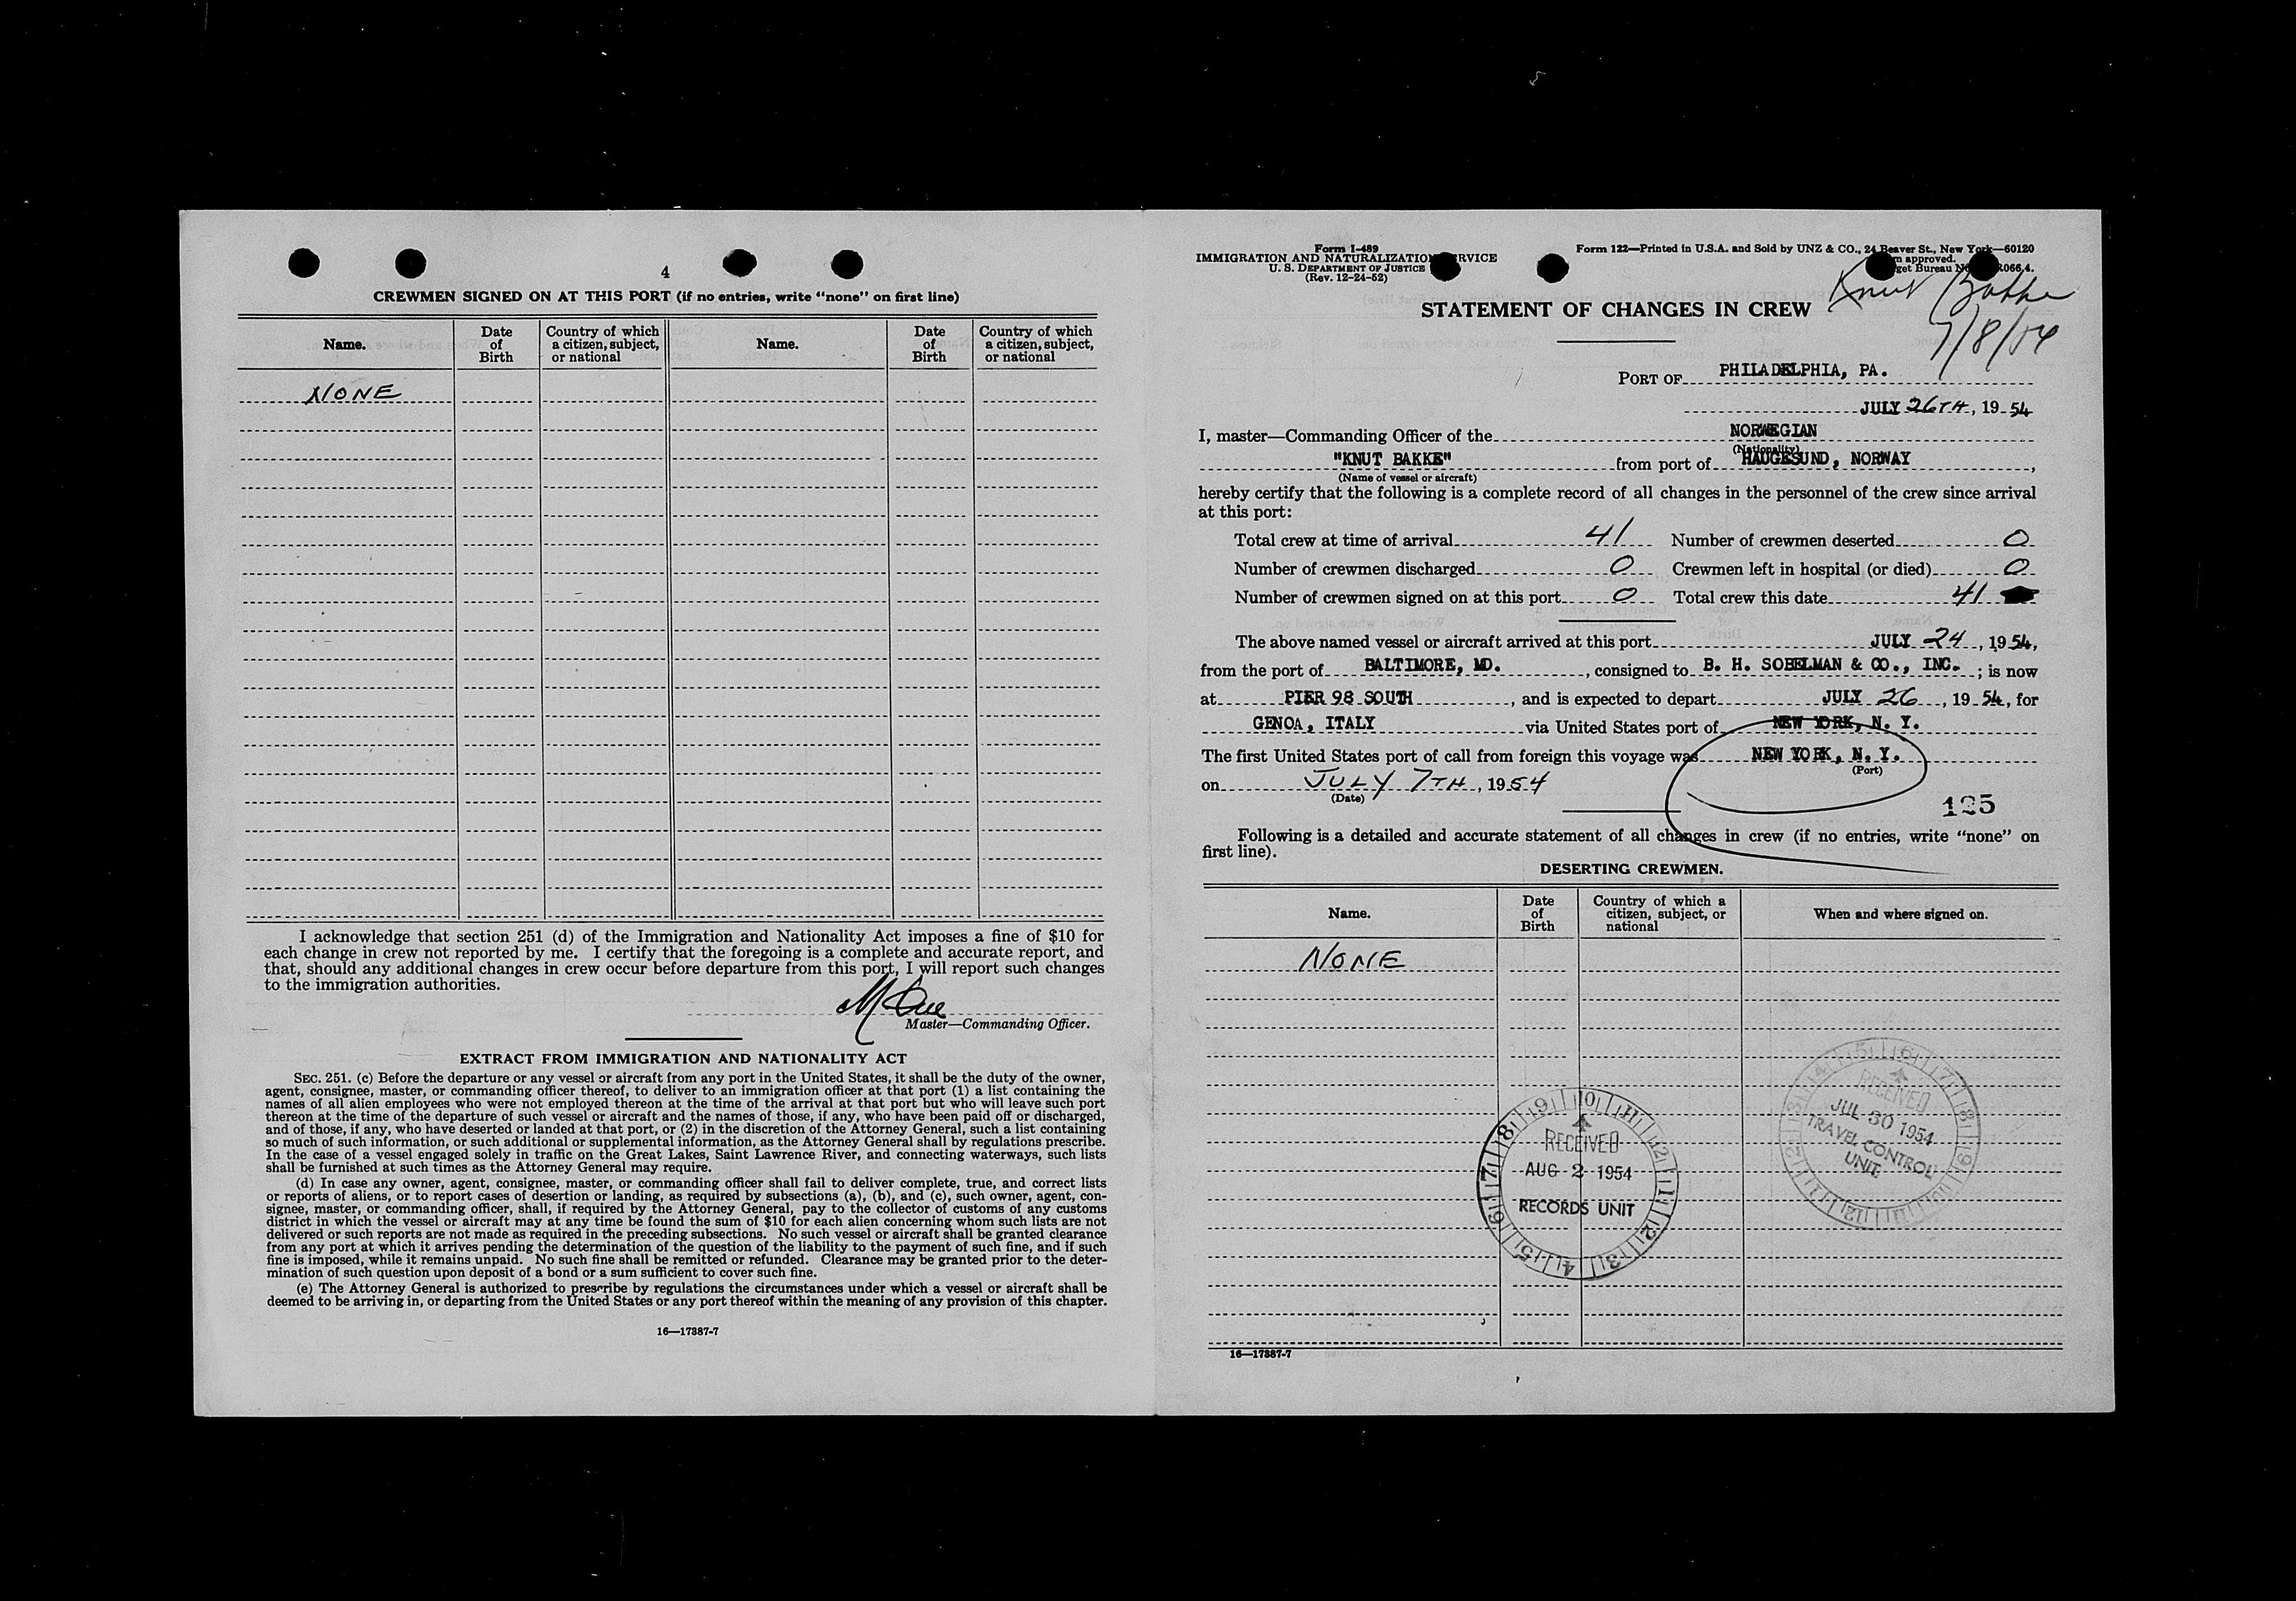 4
CREWMEN SIGNED ON AT THIS PORT (if no entries, write "none" on first line)
Name. Date of Birth Country of which a citizen, subject, or national Name. Date of Birth Country of which a citizen, subject, or national
NONE
I acknowledge that section 251 (d) of the Immigration and Nationality Act imposes a fine of $10 for
each change in crew not reported by me. I certify that the foregoing is a complete and accurate report, and
that, should any additional changes in crew occur before departure from this port, I will report such changes
to the immigration authorities.
Master—Commanding Officer.
EXTRACT FROM IMMIGRATION AND NATIONALITY ACT
SEC. 251. (c) Before the departure or any vessel or aircraft from any port in the United States, it shall be the duty of the owner,
agent, consignee, master, or commanding officer thereof, to deliver to an immigration officer at that port (1) a list containing the
names of all alien employees who were not employed thereon at the time of the arrival at that port but who will leave such port
thereon at the time of the departure of such vessel or aircraft and the names of those, if any, who have been paid off or discharged,
and of those, if any, who have deserted or landed at that port, or (2) in the discretion of the Attorney General, such a list containing
so much of such information, or such additional or supplemental information, as the Attorney General shall by regulations prescribe.
In the case of a vessel engaged solely in traffic on the Great Lakes, Saint Lawrence River, and connecting waterways, such lists
shall be furnished at such times as the Attorney General may require.
(d) In case any owner, agent, consignee, master, or commanding officer shall fail to deliver complete, true, and correct lists
or reports of aliens, or to report cases of desertion or landing, as required by subsections (a), (b), and (c), such owner, agent, con-
signee, master, or commanding officer, shall, if required by the Attorney General, pay to the collector of customs of any customs
district in which the vessel or aircraft may at any time be found the sum of $10 for each alien concerning whom such lists are not
delivered or such reports are not made as required in the preceding subsections. No such vessel or aircraft shall be granted clearance
from any port at which it arrives pending the determination of the question of the liability to the payment of such fine, and if such
fine is imposed, while it remains unpaid. No such fine shall be remitted or refunded. Clearance may be granted prior to the deter-
mination of such question upon deposit of a bond or a sum sufficient to cover such fine.
(e) The Attorney General is authorized to prescribe by regulations the circumstances under which a vessel or aircraft shall be
deemed to be arriving in, or departing from the United States or any port thereof within the meaning of any provision of this chapter.
16—17387-7
Form I-489
IMMIGRATION AND NATURALIZATION SERVICE
U. S. DEPARTMENT OF JUSTICE
(Rev. 12-24-52)
Form 122—Printed in U.S.A. and Sold by UNZ & CO., 24 Beaver St., New York—60120
approved.
Bureau
Knut Bakke
7/8/54
STATEMENT OF CHANGES IN CREW
PORT OF PHILADELPHIA, PA.
JULY 26TH, 1954
I, master—Commanding Officer of the NORWEGIAN
(Nationality)
"KNUT BAKKE" from port of HAUGESUND, NORWAY,
(Name of vessel or aircraft)
hereby certify that the following is a complete record of all changes in the personnel of the crew since arrival
at this port:
Total crew at time of arrival 41 Number of crewmen deserted 0
Number of crewmen discharged 0 Crewmen left in hospital (or died) 0
Number of crewmen signed on at this port 0 Total crew this date 41
The above named vessel or aircraft arrived at this port JULY 24, 1954,
from the port of BALTIMORE, MD., consigned to B. H. SOBELMAN & CO., INC.; is now
at PIER 98 SOUTH, and is expected to depart JULY 26, 1954, for
GENOA, ITALY via United States port of NEW YORK, N. Y.
The first United States port of call from foreign this voyage was NEW YORK, N. Y.
(Port)
on JULY 7TH, 1954
(Date)
125
Following is a detailed and accurate statement of all changes in crew (if no entries, write "none" on
first line).
DESERTING CREWMEN.
Name. Date of Birth Country of which a citizen, subject, or national When and where signed on.
NONE
RECEIVED
AUG 2 1954
RECORDS UNIT
RECEIVED
JUL 30 1954
TRAVEL CONTROL
UNIT
16—17387-7